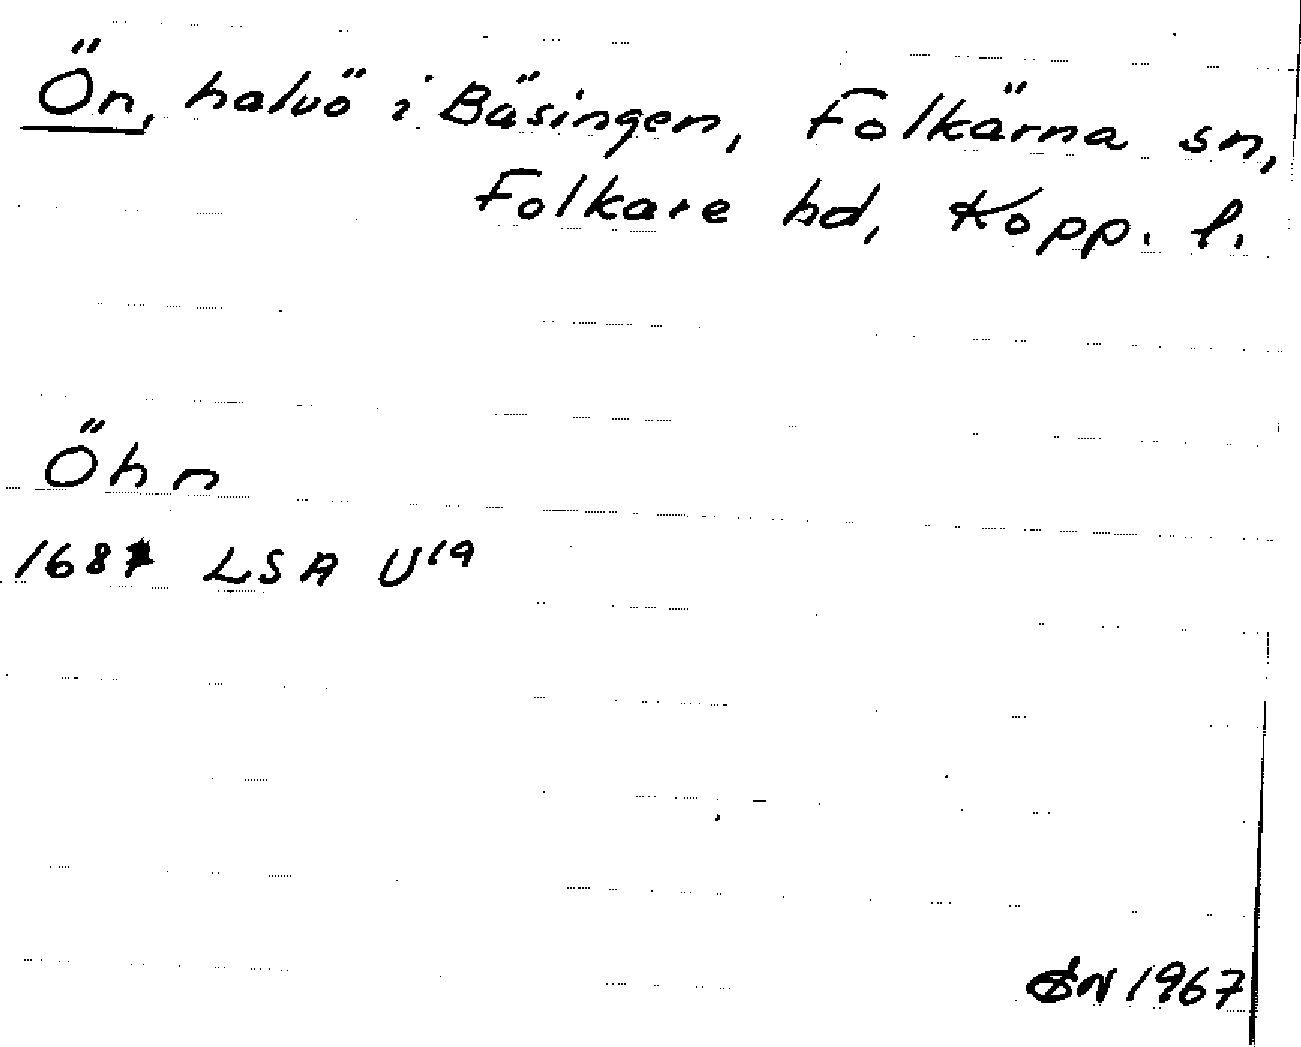 Ön, halvö i Bäsingen, Folkärna sn,
Folkare hd, Kopp. l.
Öhn
LSA U19
1967